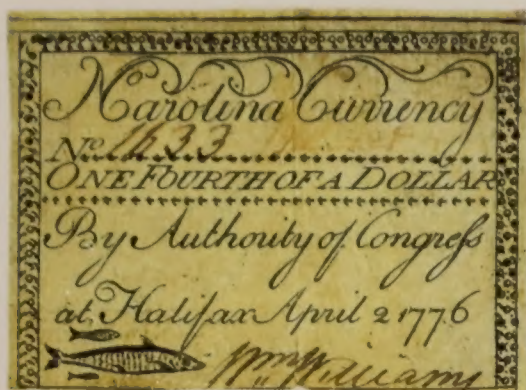 N Carolina Currency
No 1633
ONE FOURTH OF A DOLLAR
By Authority of Congress
at Halifax April 2 1776
Wm Williams